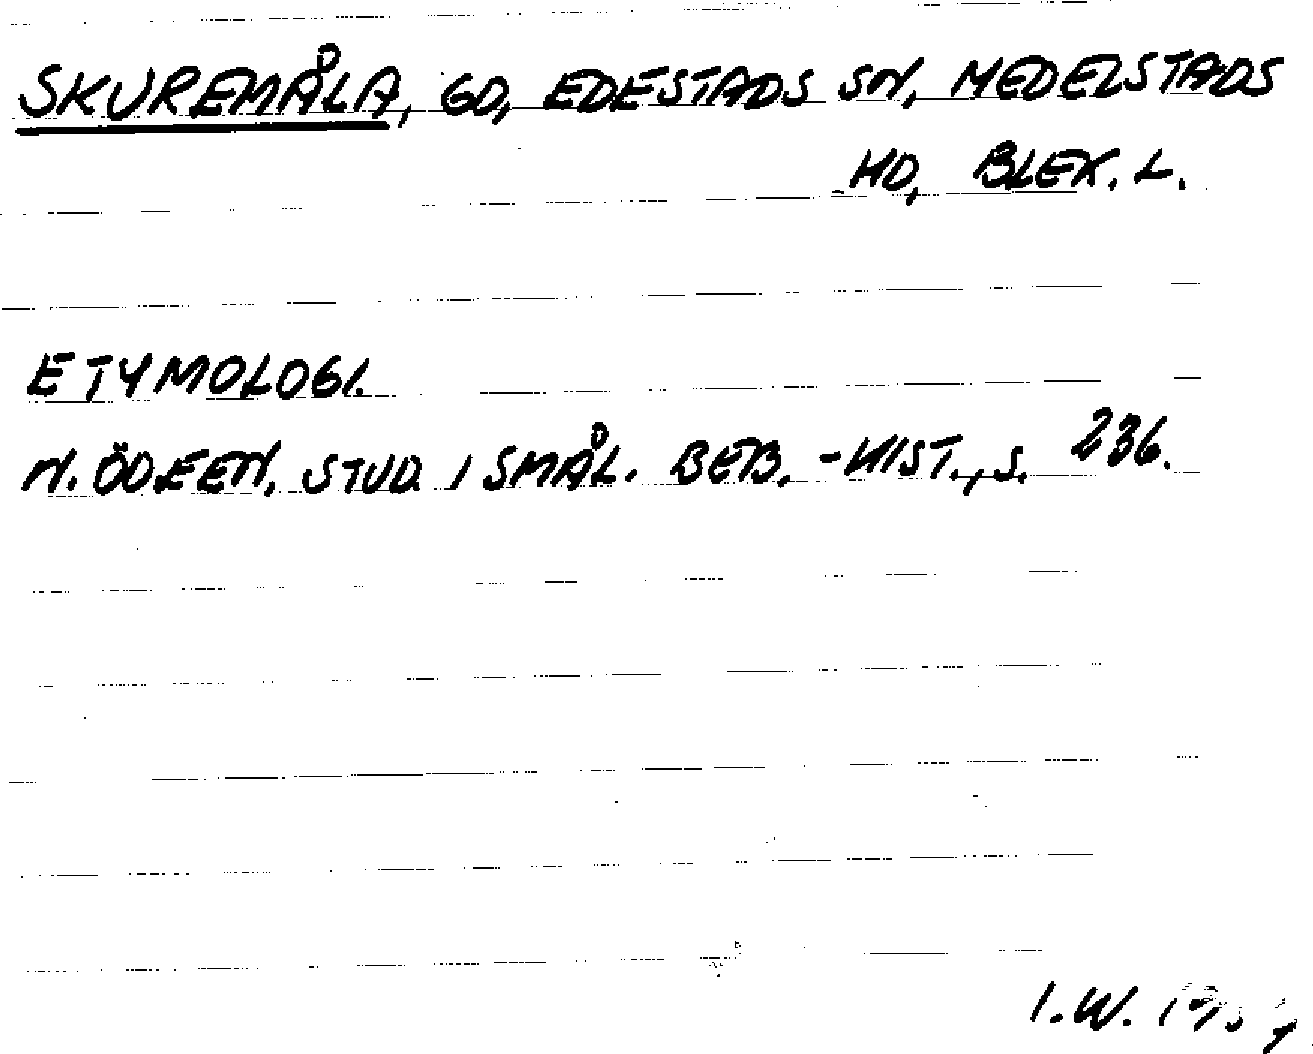 SKUREMÅLA, GD, EDESTADS SN, MEDELSTADS
HD, BLEK. L.
ETYMOLOGI.
N. ÖDEEN, STUD. I SMÅL. BEB.-HIST., S. 236.
I.W.